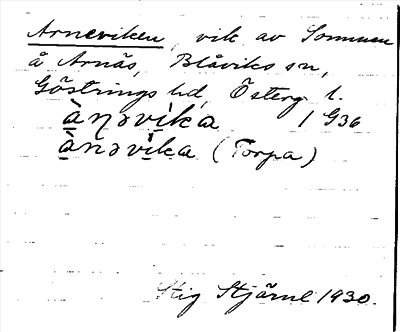 Arneviken, vik av Sommen
å Arnäs, Blåviks sn,
Göstrings hd, Österg. l.
àṇəvi̇ka / G36
ànəvi̇ka (Torpa)
Stig Stjärne 1930.